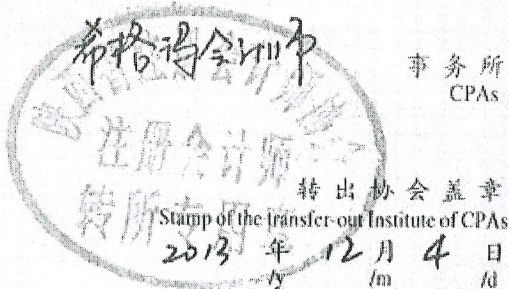 希格玛会计师 事务所
CPAs
陕西省注册会计师协会
注册会计师
转所专用章
转出协会盖章
Stamp of the transfer-out Institute of CPAs
2013 年 12 月 4 日
/y /m /d